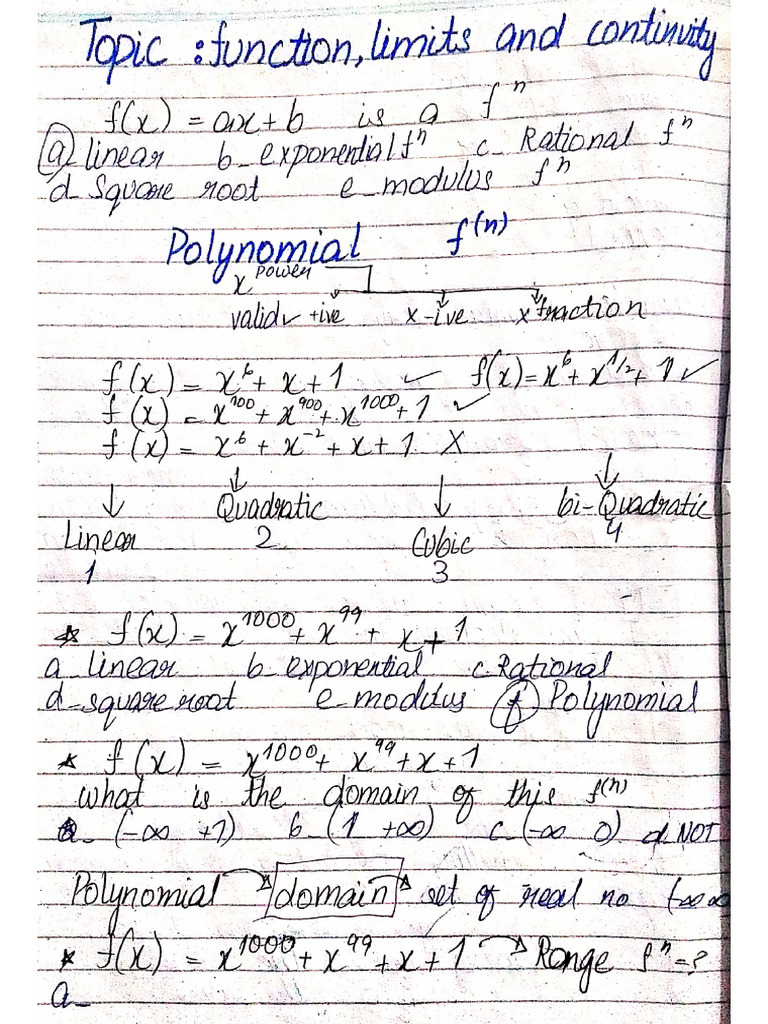 Topic : function, limits and continuity
f(x) = ax + b is a fⁿ
(a) linear b_ exponential fⁿ c_ Rational fⁿ
d_ Square root e_ modulus fⁿ
Polynomial f⁽ⁿ⁾
x power
valid✓ +ive x -ive x fraction
f(x) = x⁶ + x + 1 ✓ f(x) = x⁶ + x^1/2 + 1 ✓
f(x) = x¹⁰⁰ + x⁹⁰⁰ + x¹⁰⁰⁰ + 1 ✓
f(x) = x⁶ + x⁻² + x + 1 X
↓ ↓ ↓ ↓
Linear Quadratic Cubic bi-Quadratic
1 2 3 4
* f(x) = x¹⁰⁰⁰ + x⁹⁹ + x + 1
a_ linear b_ exponential c_ Rational
d_ square root e_ modulus (f) Polynomial
* f(x) = x¹⁰⁰⁰ + x⁹⁹ + x + 1
what is the domain of this f⁽ⁿ⁾
a_ (-∞ +1) b_ (1 +∞) c_ (-∞ 0) d_ NOT
Polynomial → domain → set of real no (-∞ ∞
* f(x) = x¹⁰⁰⁰ + x⁹⁹ + x + 1 → Range fⁿ = ?
a_